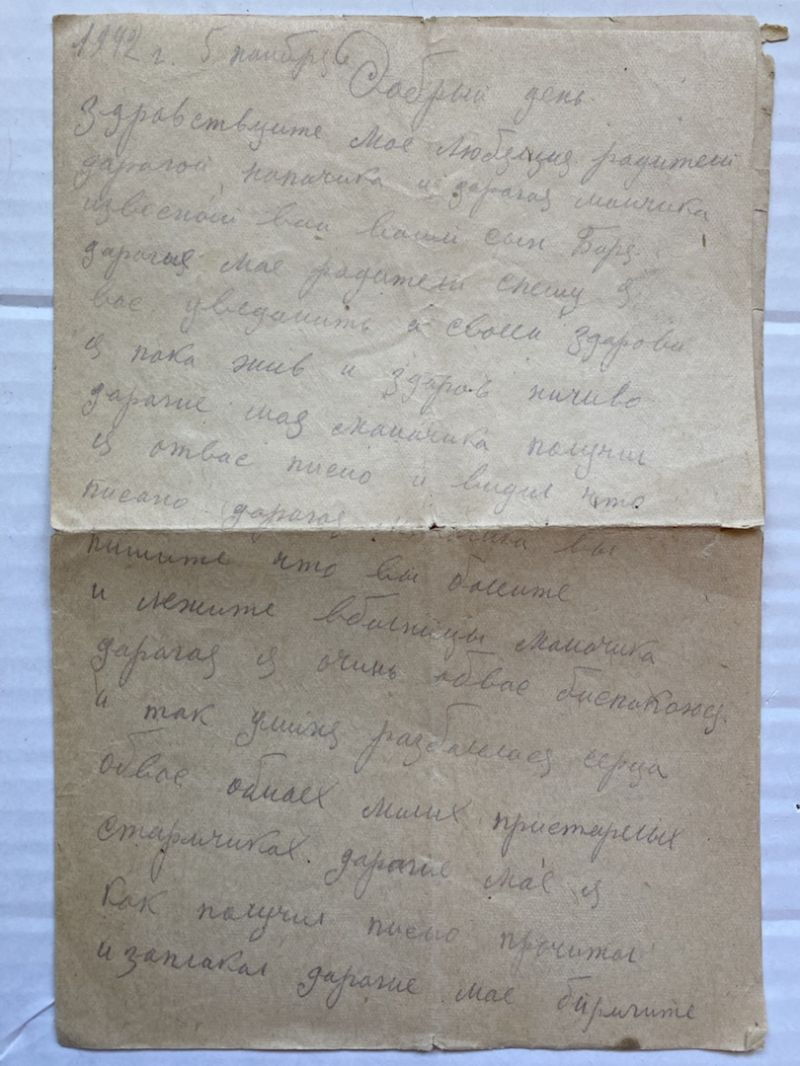 1942 г. 5 ноября
Добрый день
Здравствуите мое любещия родители
дарагой папачика и дарагая мамчика
извесной вам ваш сын Боря
дарагие мое радители спешу я
вас уведамить о своем здарови
я пока жив и здаров ничиво
дарагие мая мамачика получил
я отвас писмо и видил что
писано дарагая мамачика вы
пишите что вы болите
и лежите вбольницы мамачика
дарагая я очинь обвас биспакоюся
и так уминя разбалелася серца
обвас обмаех милых пристарелых
старичиках. дарагие мое я
как получил писмо прочитал
и заплакал дарагие мое биригите